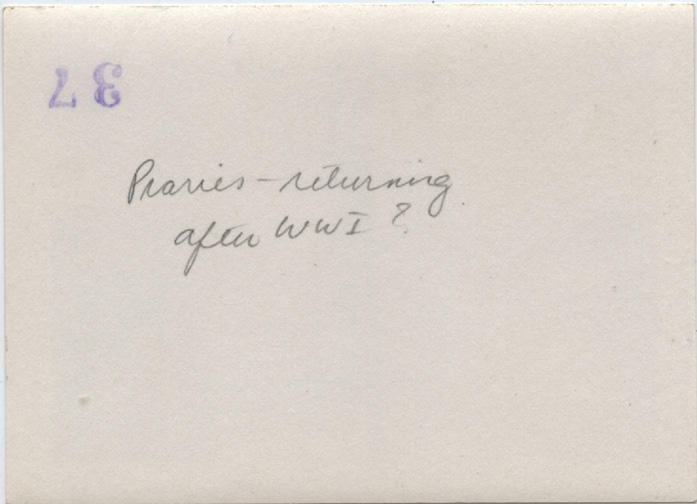 37
Praries – returning
after WWI ?